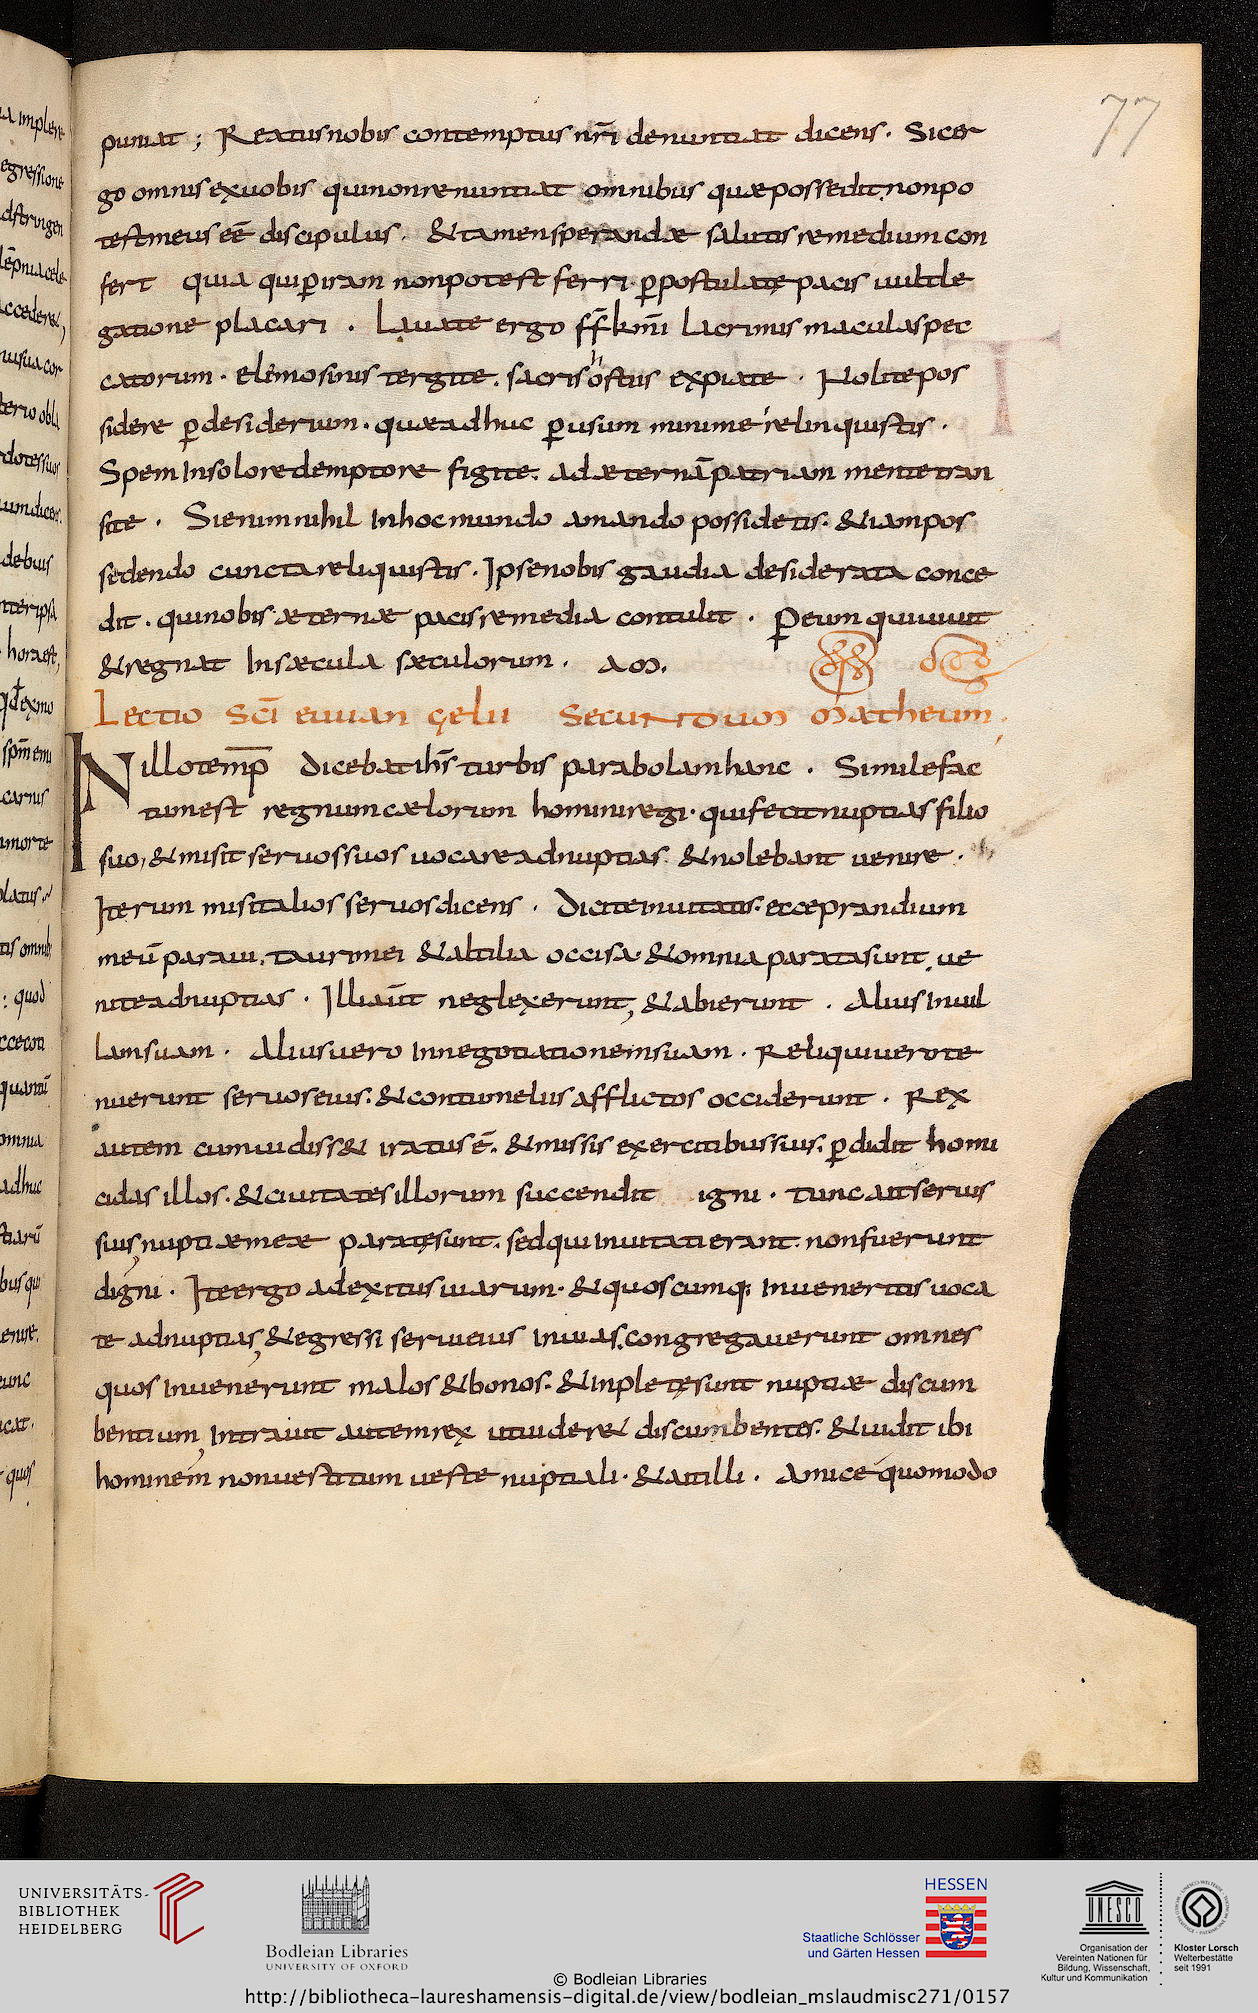 77
puniat ; Reatus nobis contemptus nr̄i denuntiat dicens . Sic er
go omnis ex uobis qui non renuntiat omnibus quæ possedit non po
test meus eē discipulus . & tamen sperandæ salutis remedium con
fert quia qui ꝑ iram non potest ferri . ꝑ postulatę pacis uult le
gatione placari . Lauate ergo ff̄ km̄i lacrimis maculas pec
catorum . elemosinis tergite . sacris hostiis expiate . Nolite pos
sidere ꝑ desiderium . quæ adhuc ꝑ usum minime relinquistis .
Spem In solo redemptore figite . ad æternā patriam mente tran
site . Si enim nihil In hoc mundo amando possidetis . & iam pos
sedendo cuncta reliquistis . Ipse nobis gaudia desiderata conce
dit . qui nobis æternæ pacis remedia contulit . Ꝑ eum qui uiuit
& regnat In sæcula sæculorum . am .
Lectio sc̄i euuangęlii secundum matheum .
IN illo temp̄ dicebat ih̄s turbis parabolam hanc . Simile fac
tum est regnum cælorum homini regi . qui fecit nuptias filio
suo , & misit seruos suos uocare ad nuptias & nolebant uenire .
Iterum misit alios seruos dicens . Dicite inuitatis . ecce prandium
meū paraui . tauri mei & altilia occisa . & omnia parata sunt , ue
nite ad nuptias . Illi aūt neglexerunt , & abierunt . Alius In uil
lam suam . Alius uero In negotiationem suam . Reliqui uero te
nuerunt seruos eius . & contumeliis afflictos occiderunt . Rex
autem cum audiss& iratus ē . & missis exercitibus suis . ꝑdidit homi
cidas illos . & ciuitates illorum succendit igni . tunc ait seruis
suis , nuptiæ meæ paratę sunt . sed qui Inuitati erant . non fuerunt
digni . Ite ergo ad exitus uiarum . & quoscumq; Inueneritis uoca
te ad nuptias , & egressi serui eius In uias , congregauerunt omnes
quos Inuenerunt malos & bonos . & Inpletę sunt nuptiæ discum
bentium , Intrauit autem rex ut uider& discumbentes . & uidit ibi
hominem non uestitum ueste nuptiali . & ait illi . Amice quomodo
UNIVERSITÄTS-
BIBLIOTHEK
HEIDELBERG
Bodleian Libraries
UNIVERSITY OF OXFORD
HESSEN
Staatliche Schlösser
und Gärten Hessen
UNESCO
Organisation der
Vereinten Nationen für
Bildung, Wissenschaft,
Kultur und Kommunikation
Kloster Lorsch
Welterbestätte
seit 1991
© Bodleian Libraries
http://bibliotheca-laureshamensis-digital.de/view/bodleian_mslaudmisc271/0157